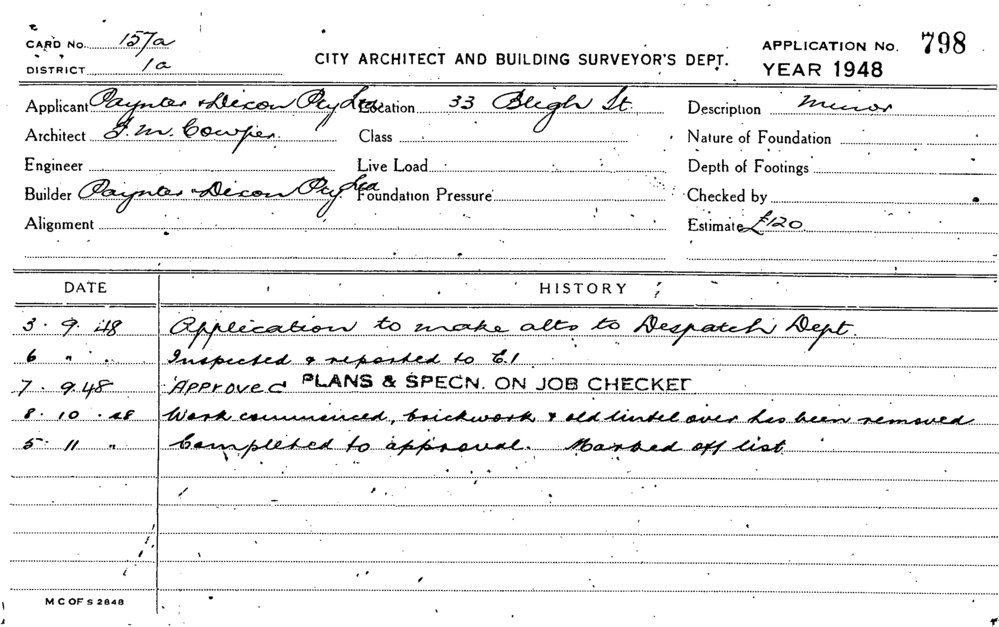 CARD No. 157a
DISTRICT 1a
CITY ARCHITECT AND BUILDING SURVEYOR'S DEPT.
APPLICATION No. 798
YEAR 1948
Applicant Paynter & Dixon Pty Ltd Location 33 Bligh St. Description Minor
Architect J.M. Cowper. Class Nature of Foundation
Engineer Live Load Depth of Footings
Builder Paynter & Dixon Pty Ltd Foundation Pressure Checked by
Alignment Estimate £120
DATE HISTORY
3. 9. 48 Application to make alts to Despatch Dept.
6 " " Inspected & reported to E.1
7. 9.48 APPROVED PLANS & SPECN. ON JOB CHECKED
8. 10. 48 Work commenced, brickwork & old lintel over has been removed
5. 11 " Completed to approval. Marked off list.
M C OF S 2848